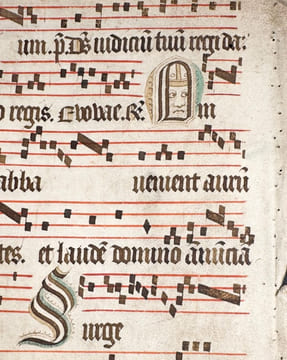 um. p̄. Ds̄ iudiciū tuū regi da:
o regis. Evovae. &. Om
abba uenient aurū
tes. et laudē domino ānūcia
Surge